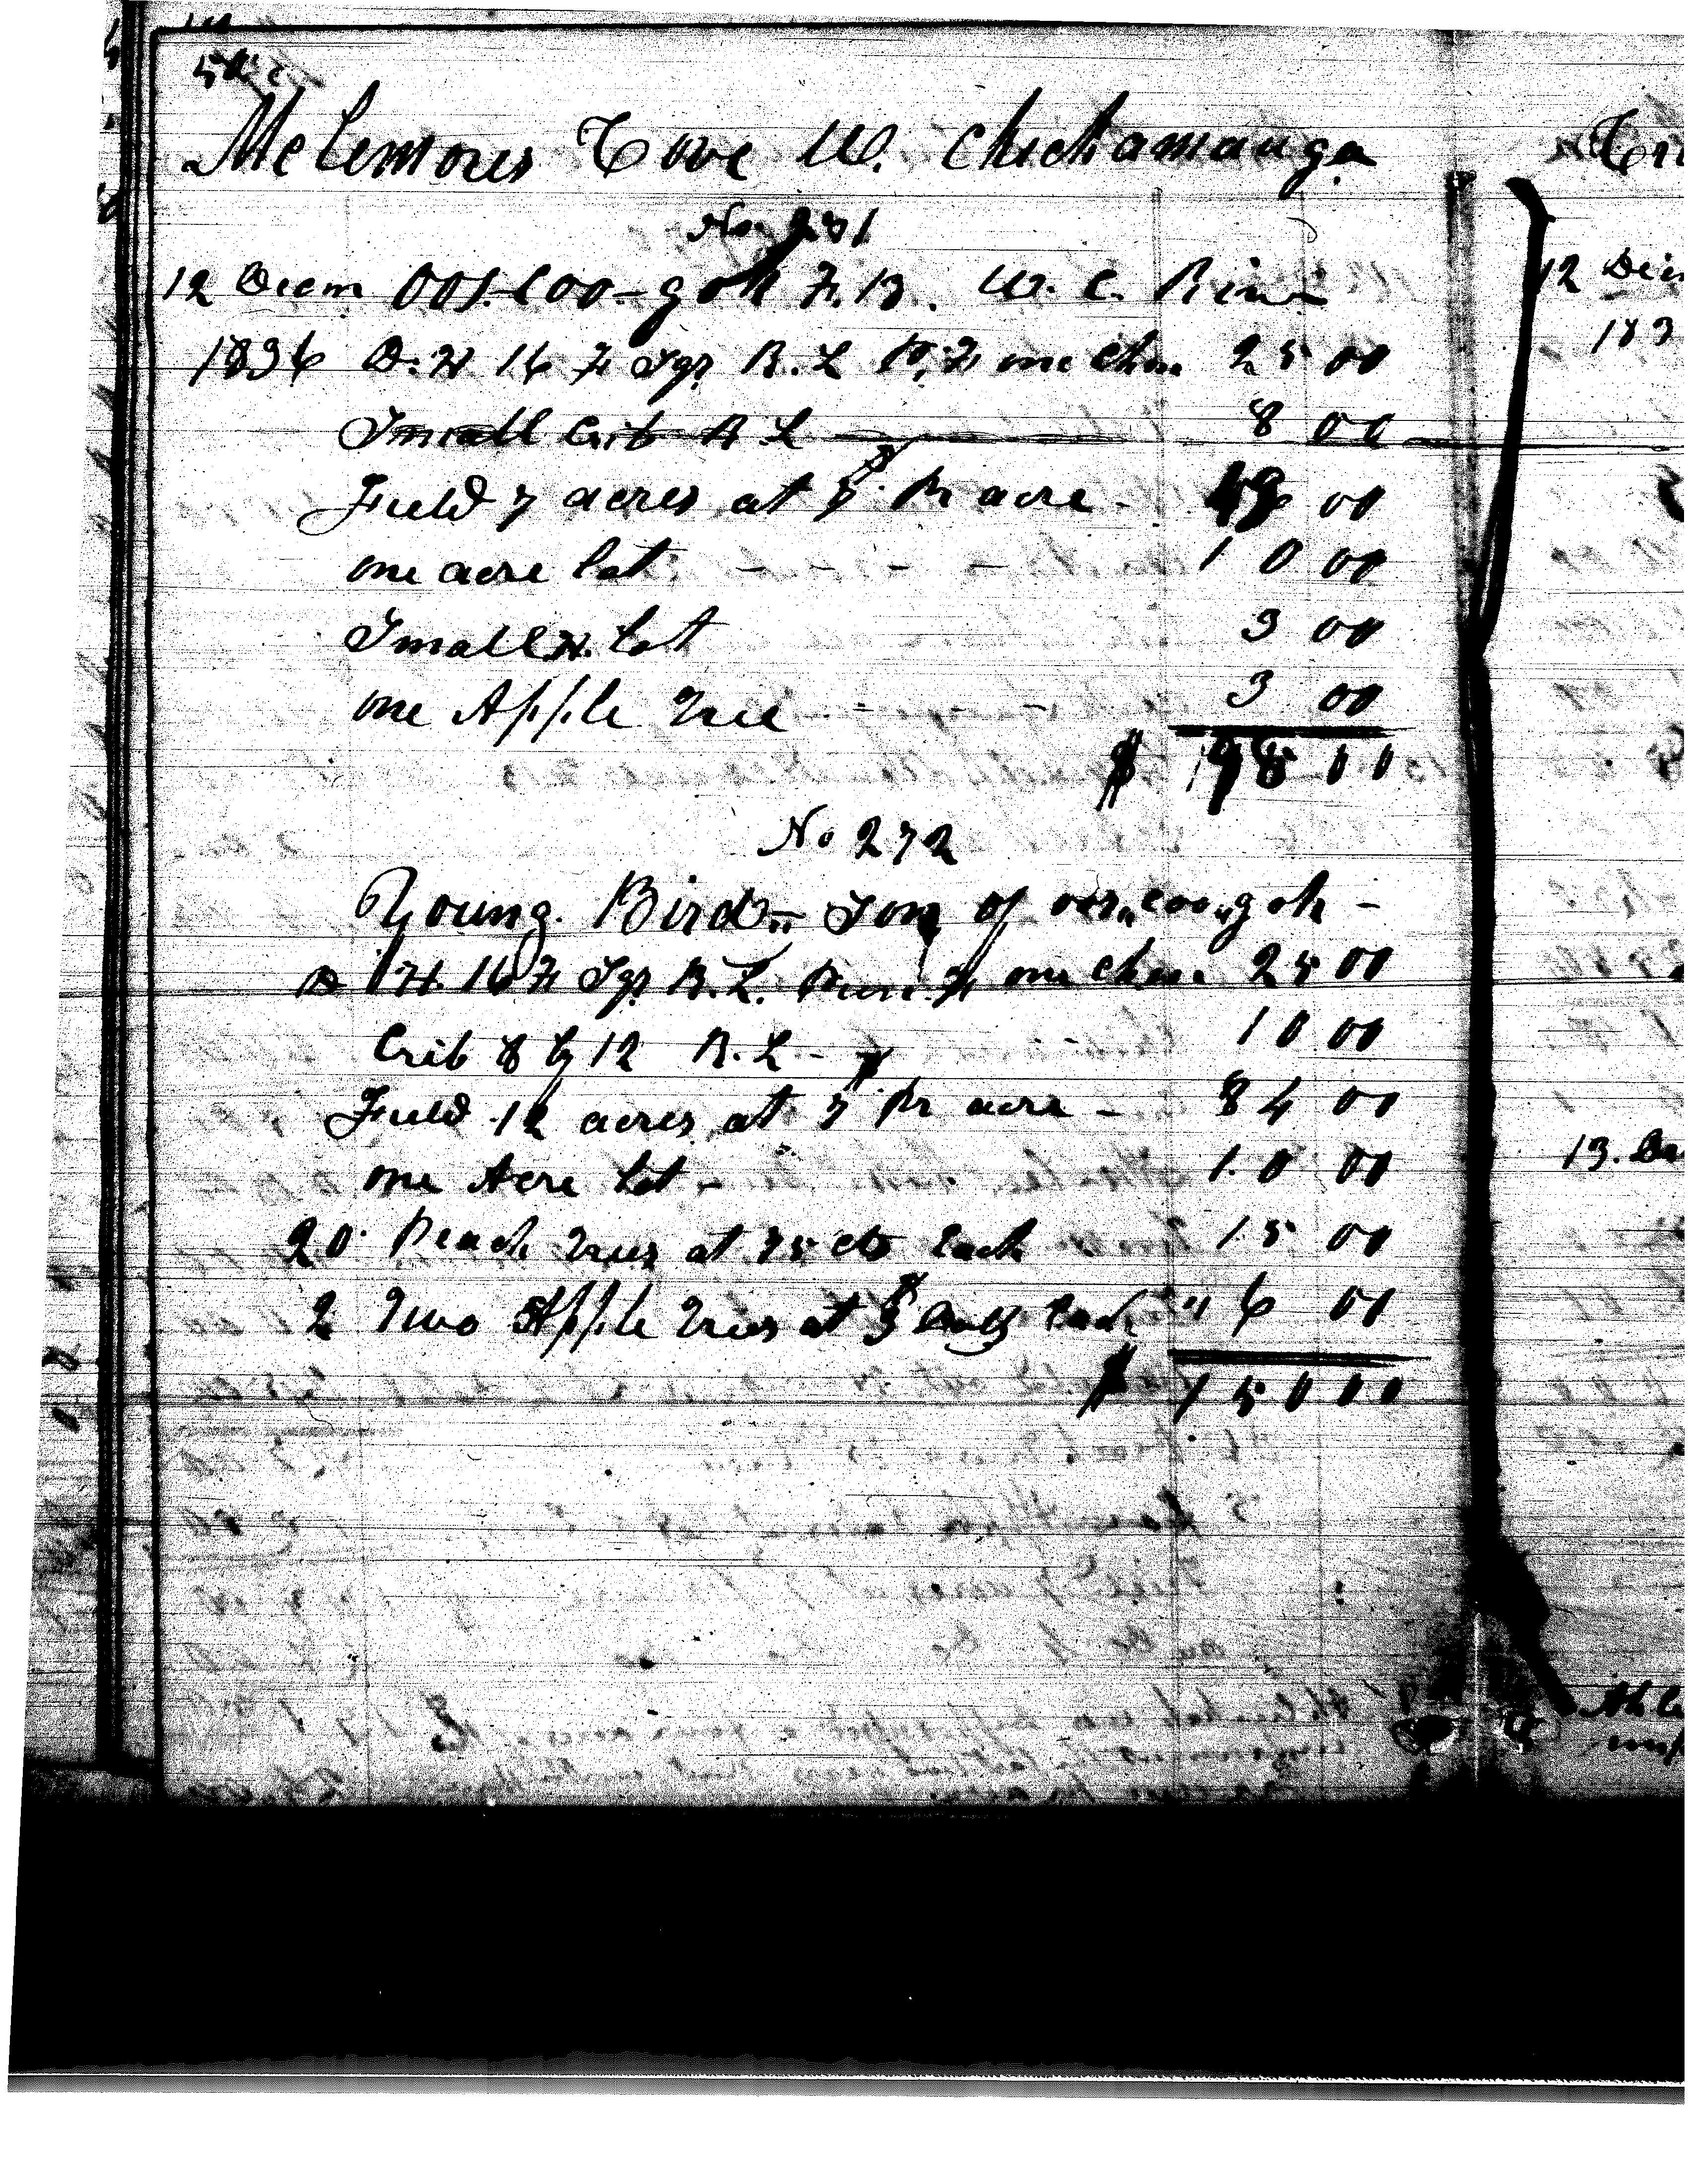 McLemores Cove W. Chickamauga
No 271
12 Decm OOS-COO-goh F. B. W. C. River
1836 D. H 16 F Sqr R. L P. F one Chm 25 00
Small Crib R L 8 00
Field 7 acres at $7 Pr acre - 49 00
one acre lot - - - - 10 00
Small H. lot 3 00
one Apple Tree - 3 00
$ 98 00
No 272
Young Bird - Son of oos,,coo,,goh -
D H. 16 F Sqr R. L. Punc. F one Chm 25 00
Crib 8 by 12 R. L - 10 00
Field 12 acres at $7 Pr acre - 84 00
one Acre lot - 10 00
20 Peach Trees at 75 cts Each 15 00
2 Two Apple Trees at $3 Each " 6 00
$ 150 00
12
183
13.